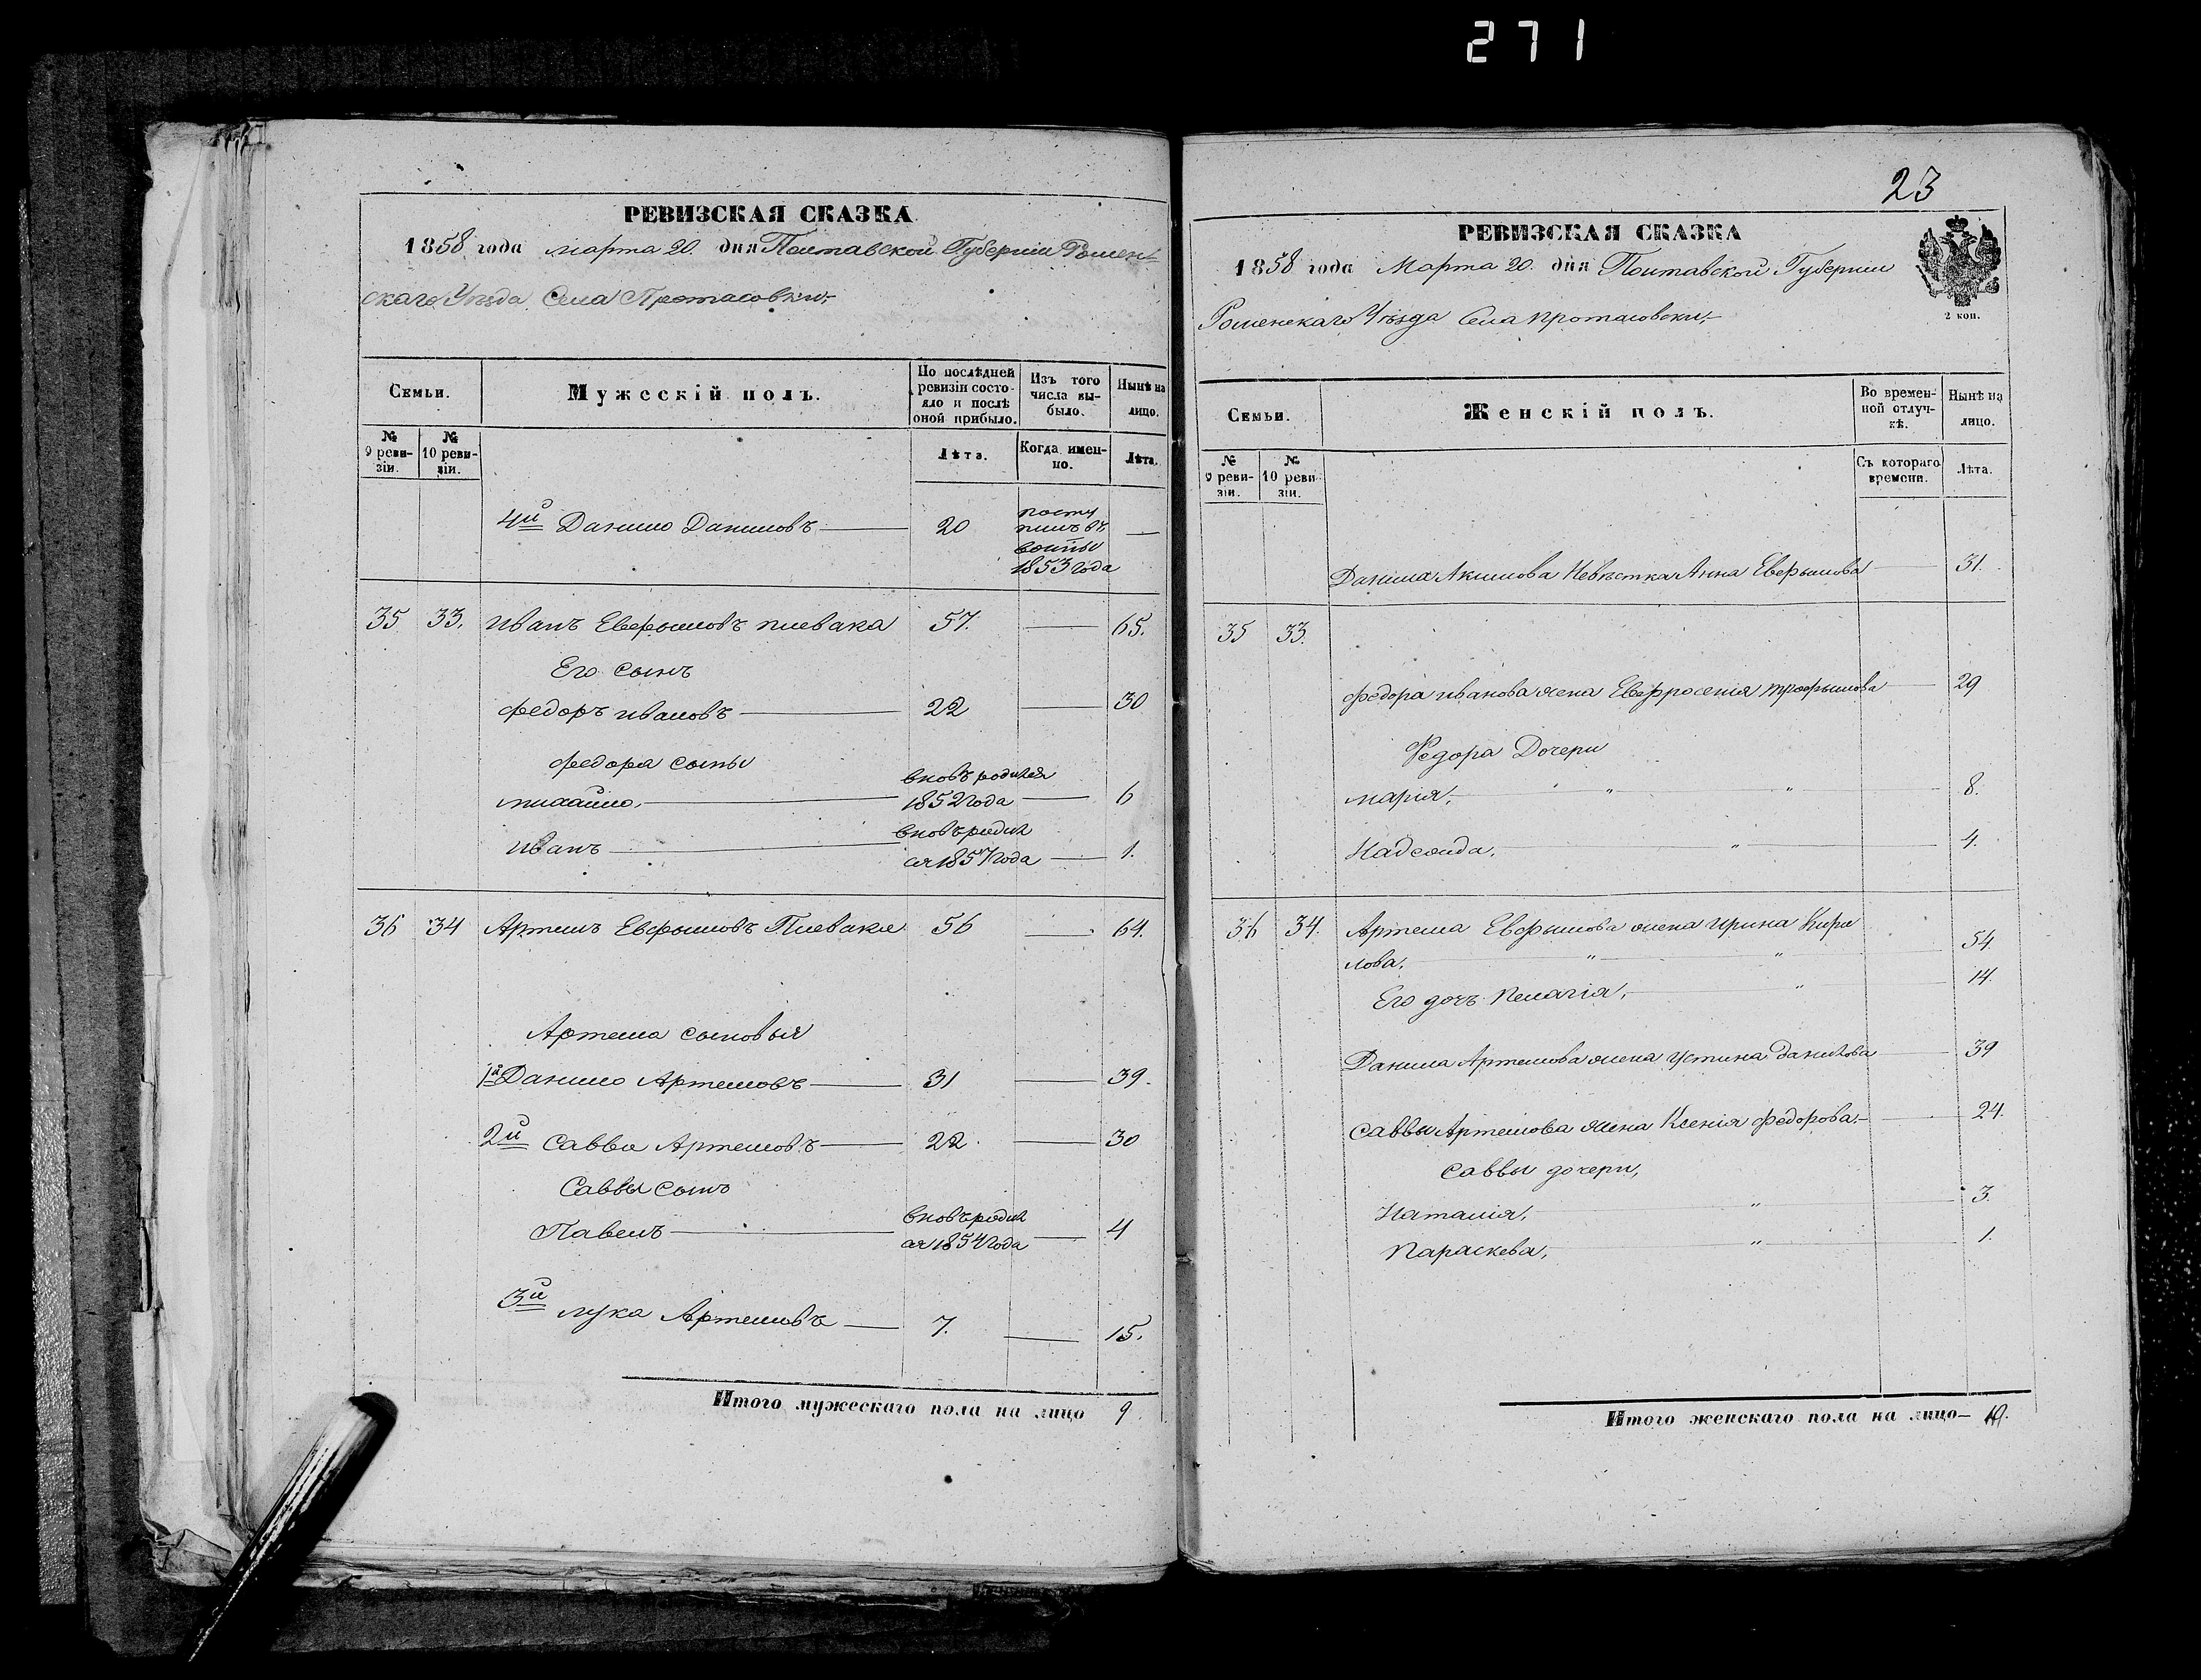 271
РЕВИЗСКАЯ СКАЗКА
1858 года марта 20. дня Полтавской Губерніи Ромен-
скаго Уѣзда Села Протасовки,
Семьи.
Мужескій полъ.
По послѣдней ревизіи состо-
яло и послѣ оной прибыло.
Изъ того числа вы-
было.
Нынѣ на лицо.
№ 9 реви-
зіи.
№ 10 реви-
зіи.
Лѣта.
Когда имен-
но.
Лѣта.
4й Данило Даниловъ — 20 посту
—
1853 года
35 33. Иванъ Евфимовъ плевака 57. — 65.
Его сынъ
Федоръ ивановъ — 22 — 30
Федора сыны
михайло, — вновь родился
1852 года — 6
Иванъ — вновь родил
ся 1857 года — 1.
36 34 Артемъ Евфимовъ Плевака 56 — 64.
Артема сыновья
1й Данило Артемовъ — 31 — 39.
2й Савва Артемовъ — 22. — 30
Саввы сынъ
Павелъ — вновь родил
ся 1854 года — 4
3й лука Артемовъ — 7. — 15.
Итого мужескаго пола на лицо 9.
23
РЕВИЗСКАЯ СКАЗКА
1858 года Марта 20. дня Полтавской Губерніи
Роменскаго Уѣзда Села протасовки,
2 коп.
Семьи.
Женскій полъ.
Во времен-
ной отлуч-
кѣ.
Нынѣ на лицо.
№ 9 реви-
зіи.
№ 10 реви-
зіи.
Съ котораго времени.
Лѣта.
Данила Акимова Невѣстка Анна Евфимова — 31.
35 33.
Федора иванова жена Евфросенія трофимова — 29
Федора Дочери
марія, — " — " — 8.
Надежда, — " — 4.
36 34. Артема Евфимова жена ирина Кири
лова, — " — " — 54.
Его дочь пелагія, — " — 14.
Данила Артемова жена устина данилова — 39
Саввы Артемова жена Ксенія Федорова — 24.
Саввы дочери,
Наталія, — " — 3.
Параскева, — " — 1.
Итого женскаго пола на лицо — 10.